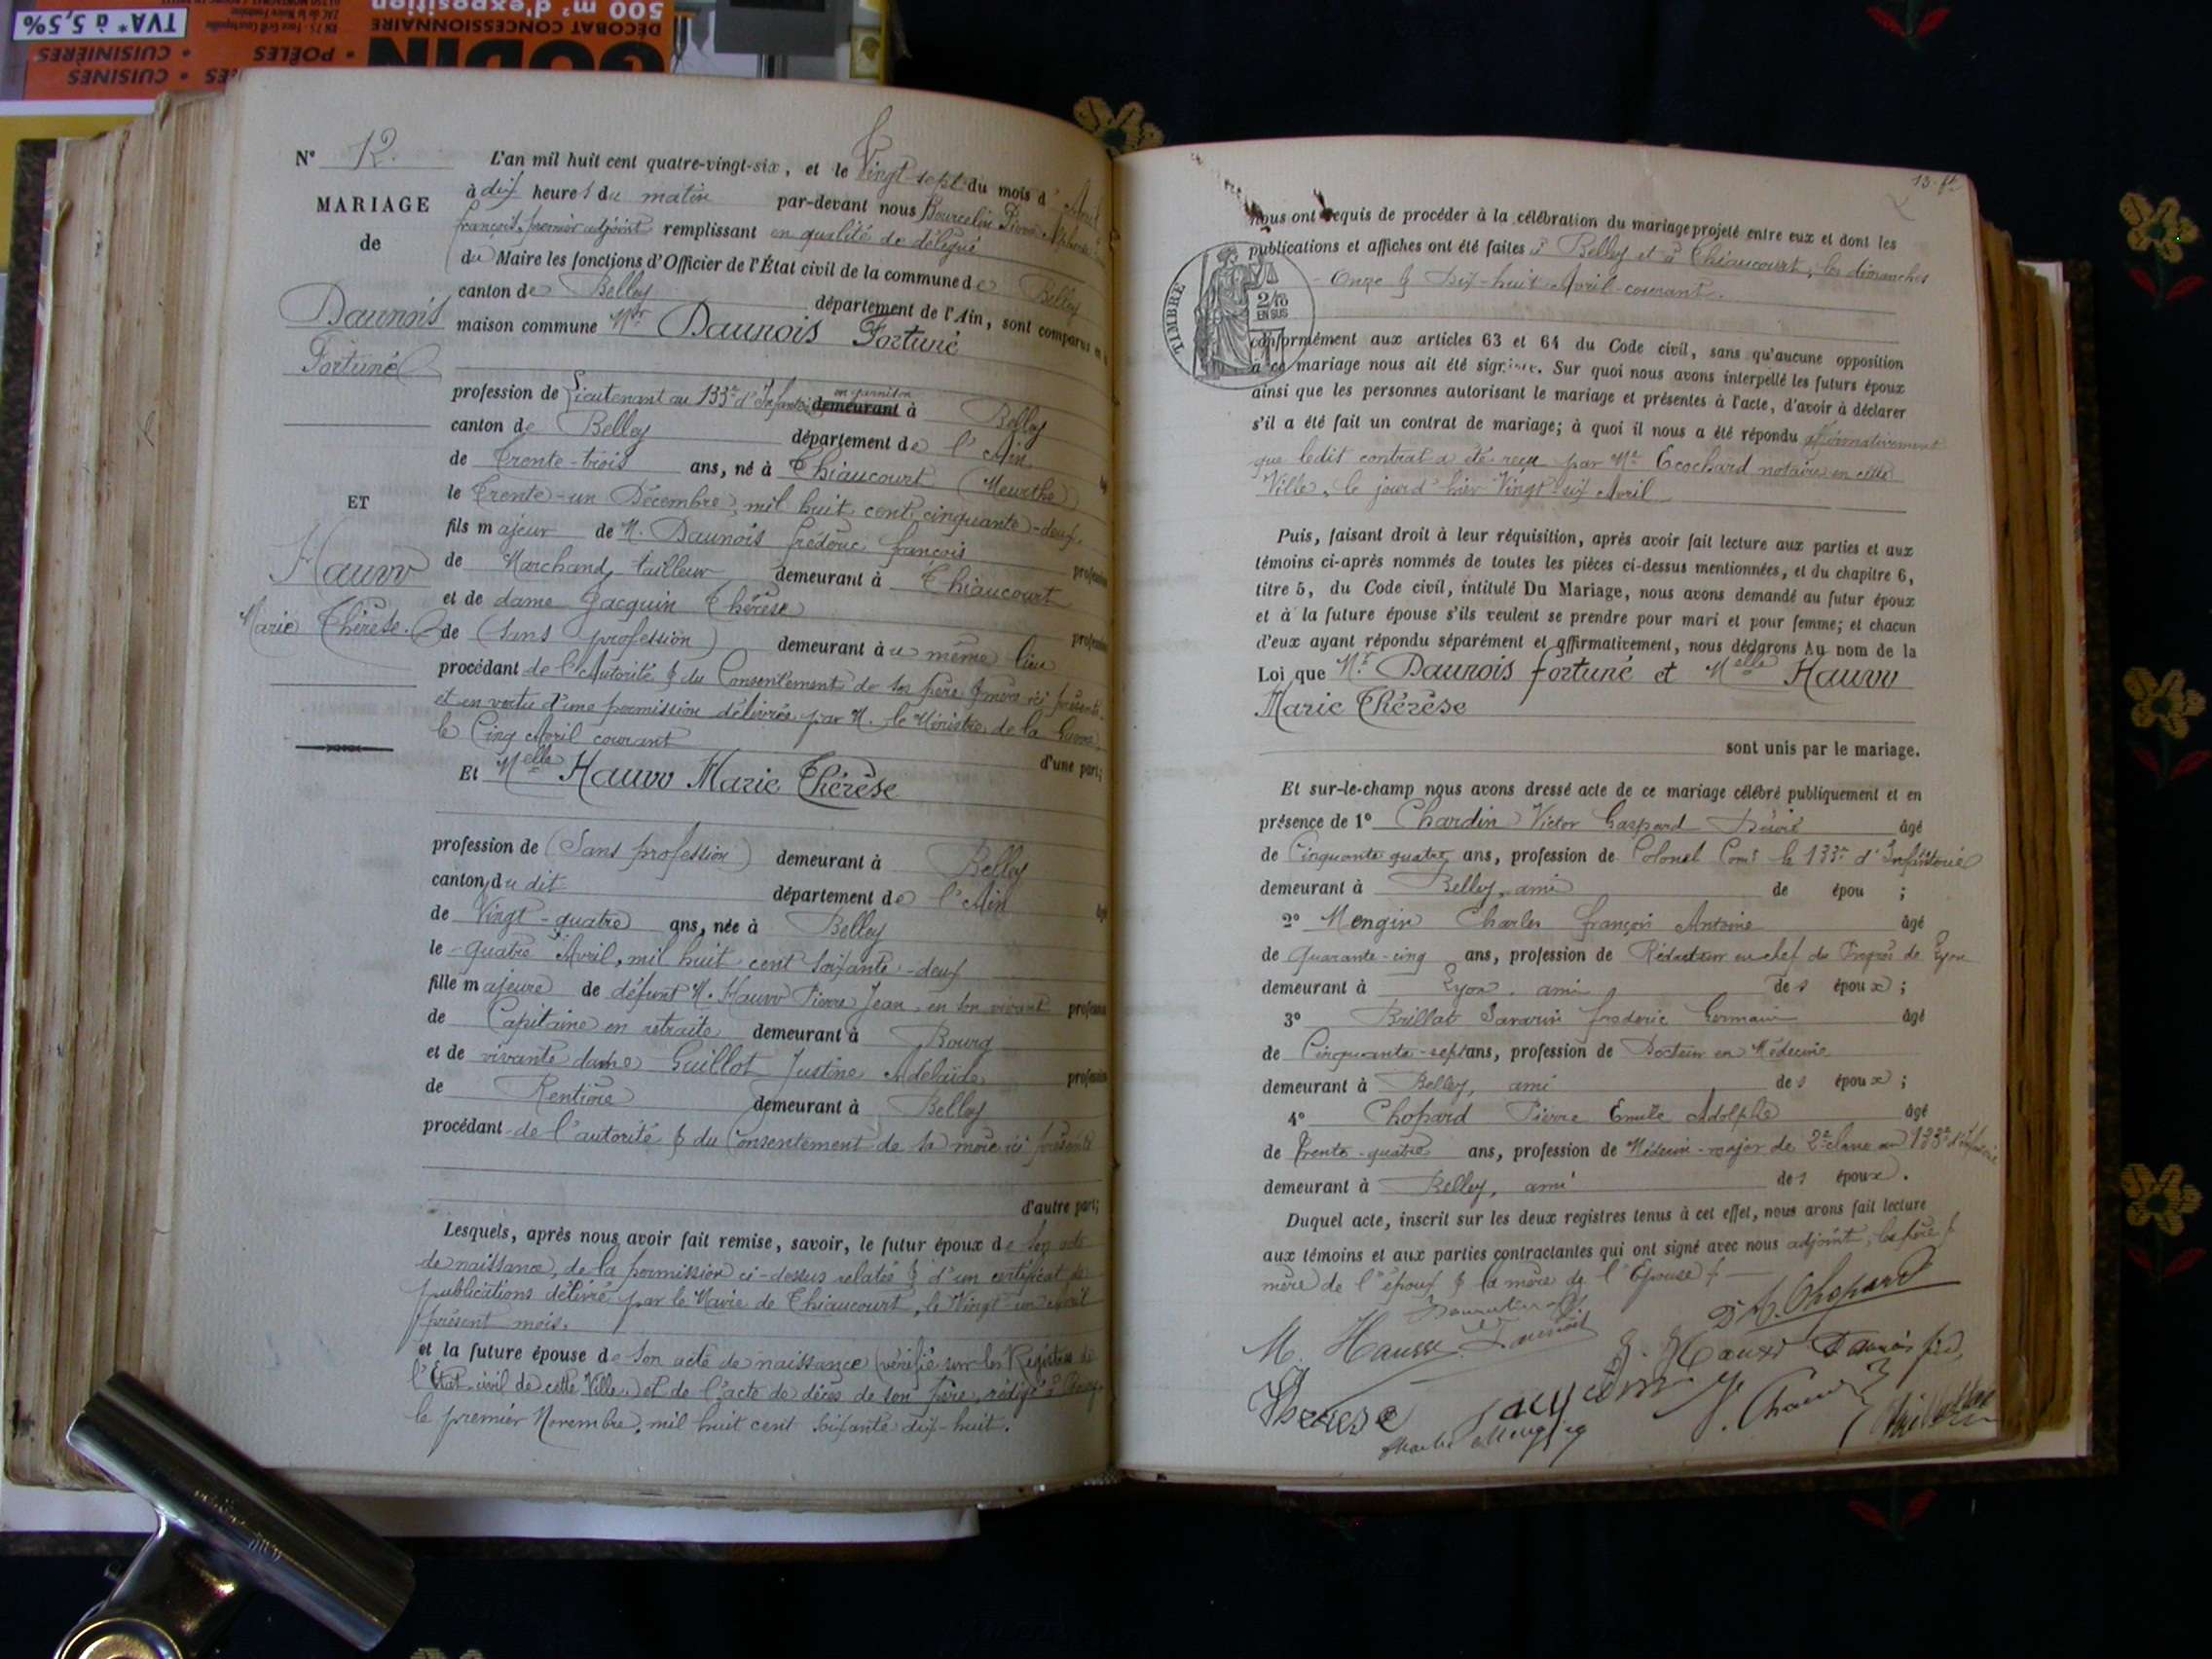 TVA* à 5,5%
• CUISINIÈRES
• POÊLES
• CUISINES
GODIN
DÉCOBAT CONCESSIONNAIRE
500 m² d'exposition
N° 12.
MARIAGE
de
Daunois
Fortuné
ET
Hauw
Marie Thérèse.
L'an mil huit cent quatre-vingt-six, et le Vingt-sept du mois d' Avril
à dix heures du matin par-devant nous Bourcelin Pierre Alphonse
François, premier adjoint remplissant en qualité de délégué
du Maire les fonctions d'Officier de l'État civil de la commune de Belley
canton de Belley département de l'Ain, sont comparus en
maison commune Mr Daunois Fortuné
profession de Lieutenant au 133e d'Infanterie en garnison demeurant à Belley
canton de Belley département de l'Ain
de Trente-trois ans, né à Thiaucourt (Meurthe)
le Trente-un Décembre, mil huit cent cinquante-deux.
fils majeur de M. Daunois Frédéric François profession
de Marchand tailleur demeurant à Thiaucourt
et de dame Jacquin Thérèse profession
de (Sans profession) demeurant au même lieu
procédant de l'Autorité & du Consentement de ses père & mère ici présents
et en vertu d'une permission délivrée par M. le Ministre de la Guerre
le Cinq Avril courant d'une part;
Et Melle Hauw Marie Thérèse
profession de (Sans profession) demeurant à Belley
canton du dit département de l'Ain
de Vingt-quatre ans, née à Belley
le quatre Avril, mil huit cent soixante-deux
fille majeure de défunt M. Hauw Pierre Jean, en son vivant profession
de Capitaine en retraite demeurant à Bourg
et de vivante dame Guillot Justine Adélaïde profession
de Rentière demeurant à Belley
procédant de l'autorité & du Consentement de sa mère ici présente
d'autre part;
Lesquels, après nous avoir fait remise, savoir, le futur époux de son acte
de naissance, de la permission ci-dessus relatée & d'un certificat de
publications délivré par le Maire de Thiaucourt, le Vingt-un Avril
présent mois.
et la future épouse de son acte de naissance (vérifié sur les Registres de
l'État civil de cette Ville) et de l'acte de décès de son père, rédigé à Bourg
le premier Novembre, mil huit cent soixante dix-huit.
13. ft
nous ont requis de procéder à la célébration du mariage projeté entre eux et dont les
publications et affiches ont été faites à Belley et à Thiaucourt, les dimanches
Onze & Dix-huit Avril courant.
TIMBRE
2/10
EN SUS
conformément aux articles 63 et 64 du Code civil, sans qu'aucune opposition
à ce mariage nous ait été signifiée. Sur quoi nous avons interpellé les futurs époux
ainsi que les personnes autorisant le mariage et présentes à l'acte, d'avoir à déclarer
s'il a été fait un contrat de mariage; à quoi il nous a été répondu affirmativement
que ledit contrat a été reçu par Me Ecochard notaire en cette
Ville, le jour d'hier Vingt-six Avril
Puis, faisant droit à leur réquisition, après avoir fait lecture aux parties et aux
témoins ci-après nommés de toutes les pièces ci-dessus mentionnées, et du chapitre 6,
titre 5, du Code civil, intitulé Du Mariage, nous avons demandé au futur époux
et à la future épouse s'ils veulent se prendre pour mari et pour femme; et chacun
d'eux ayant répondu séparément et affirmativement, nous déclarons Au nom de la
Loi que Mr. Daunois fortuné et Melle Hauw
Marie Thérèse
sont unis par le mariage.
Et sur-le-champ nous avons dressé acte de ce mariage célébré publiquement et en
présence de 1° Chardin Victor Gaspard Désiré âgé
de Cinquante quatre ans, profession de Colonel Comt le 133e d'Infanterie
demeurant à Belley, ami de épou ;
2° Mengin Charles François Antoine âgé
de quarante-cinq ans, profession de Rédacteur en chef du Progrès de Lyon
demeurant à Lyon, ami des époux ;
3° Brillat Savarin Frédéric Germain âgé
de Cinquante-sept ans, profession de Docteur en Médecine
demeurant à Belley, ami des époux ;
4° Chopard Pierre Emile Adolphe âgé
de Trente-quatre ans, profession de Médecin-major de 2e classe au 133e d'Infanterie
demeurant à Belley, ami des époux.
Duquel acte, inscrit sur les deux registres tenus à cet effet, nous avons fait lecture
aux témoins et aux parties contractantes qui ont signé avec nous adjoint, les père &
mère de l'époux & la mère de l'Epouse
Dr A. Chopard
M. Hauw Daunois
Daunois fréd,
Thérèse Jacquin
Charles Mengin